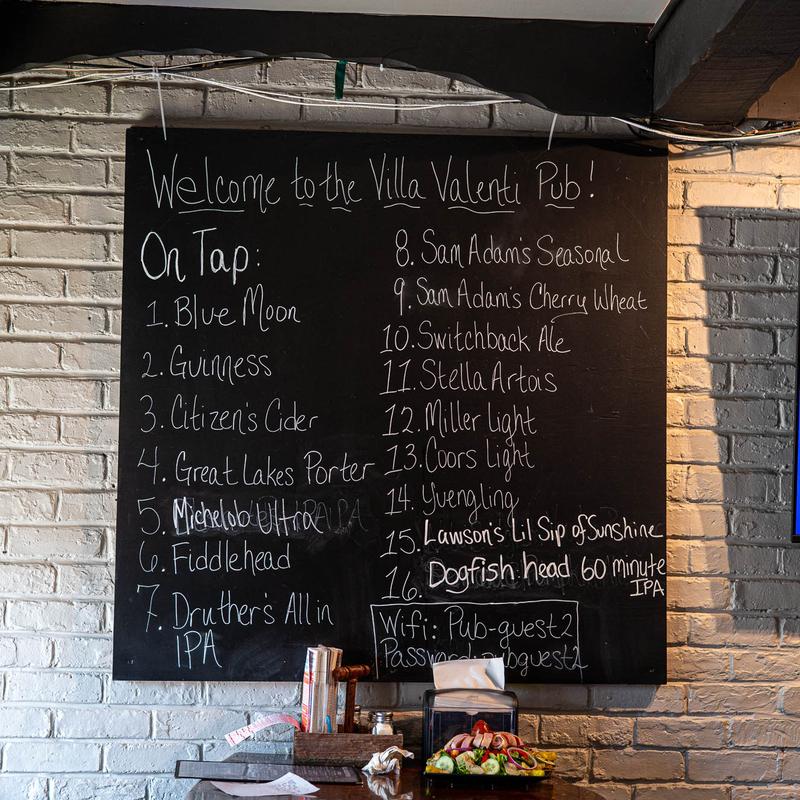 Welcome to the Villa Valenti Pub!
On Tap:
1. Blue Moon
2. Guinness
3. Citizen's Cider
4. Great Lakes Porter
5. Michelob Ultra
6. Fiddlehead
7. Druther's All in
IPA
8. Sam Adam's Seasonal
9. Sam Adam's Cherry Wheat
10. Switchback Ale
11. Stella Artois
12. Miller Light
13. Coors Light
14. Yuengling
15. Lawson's Lil Sip of Sunshine
16. Dogfish head 60 minute
IPA
Wifi: Pub-guest2
Password: pubguest2